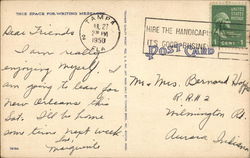 THIS SPACE FOR WRITING MESSAGES
TAMPA
JUL 27
2 PM
1950
FLA
HIRE THE HANDICAPPED
IT'S GOOD BUSINESS
POST CARD
Dear Friends
I am really
enjoying myself. I
am going to leave for
New Orleans this
Sat. I'll be home
some time next week
Love,
Marguerite
Mr. & Mrs. Bernard
R.R. # 2
Wilmington Rd.
Aurora Indiana